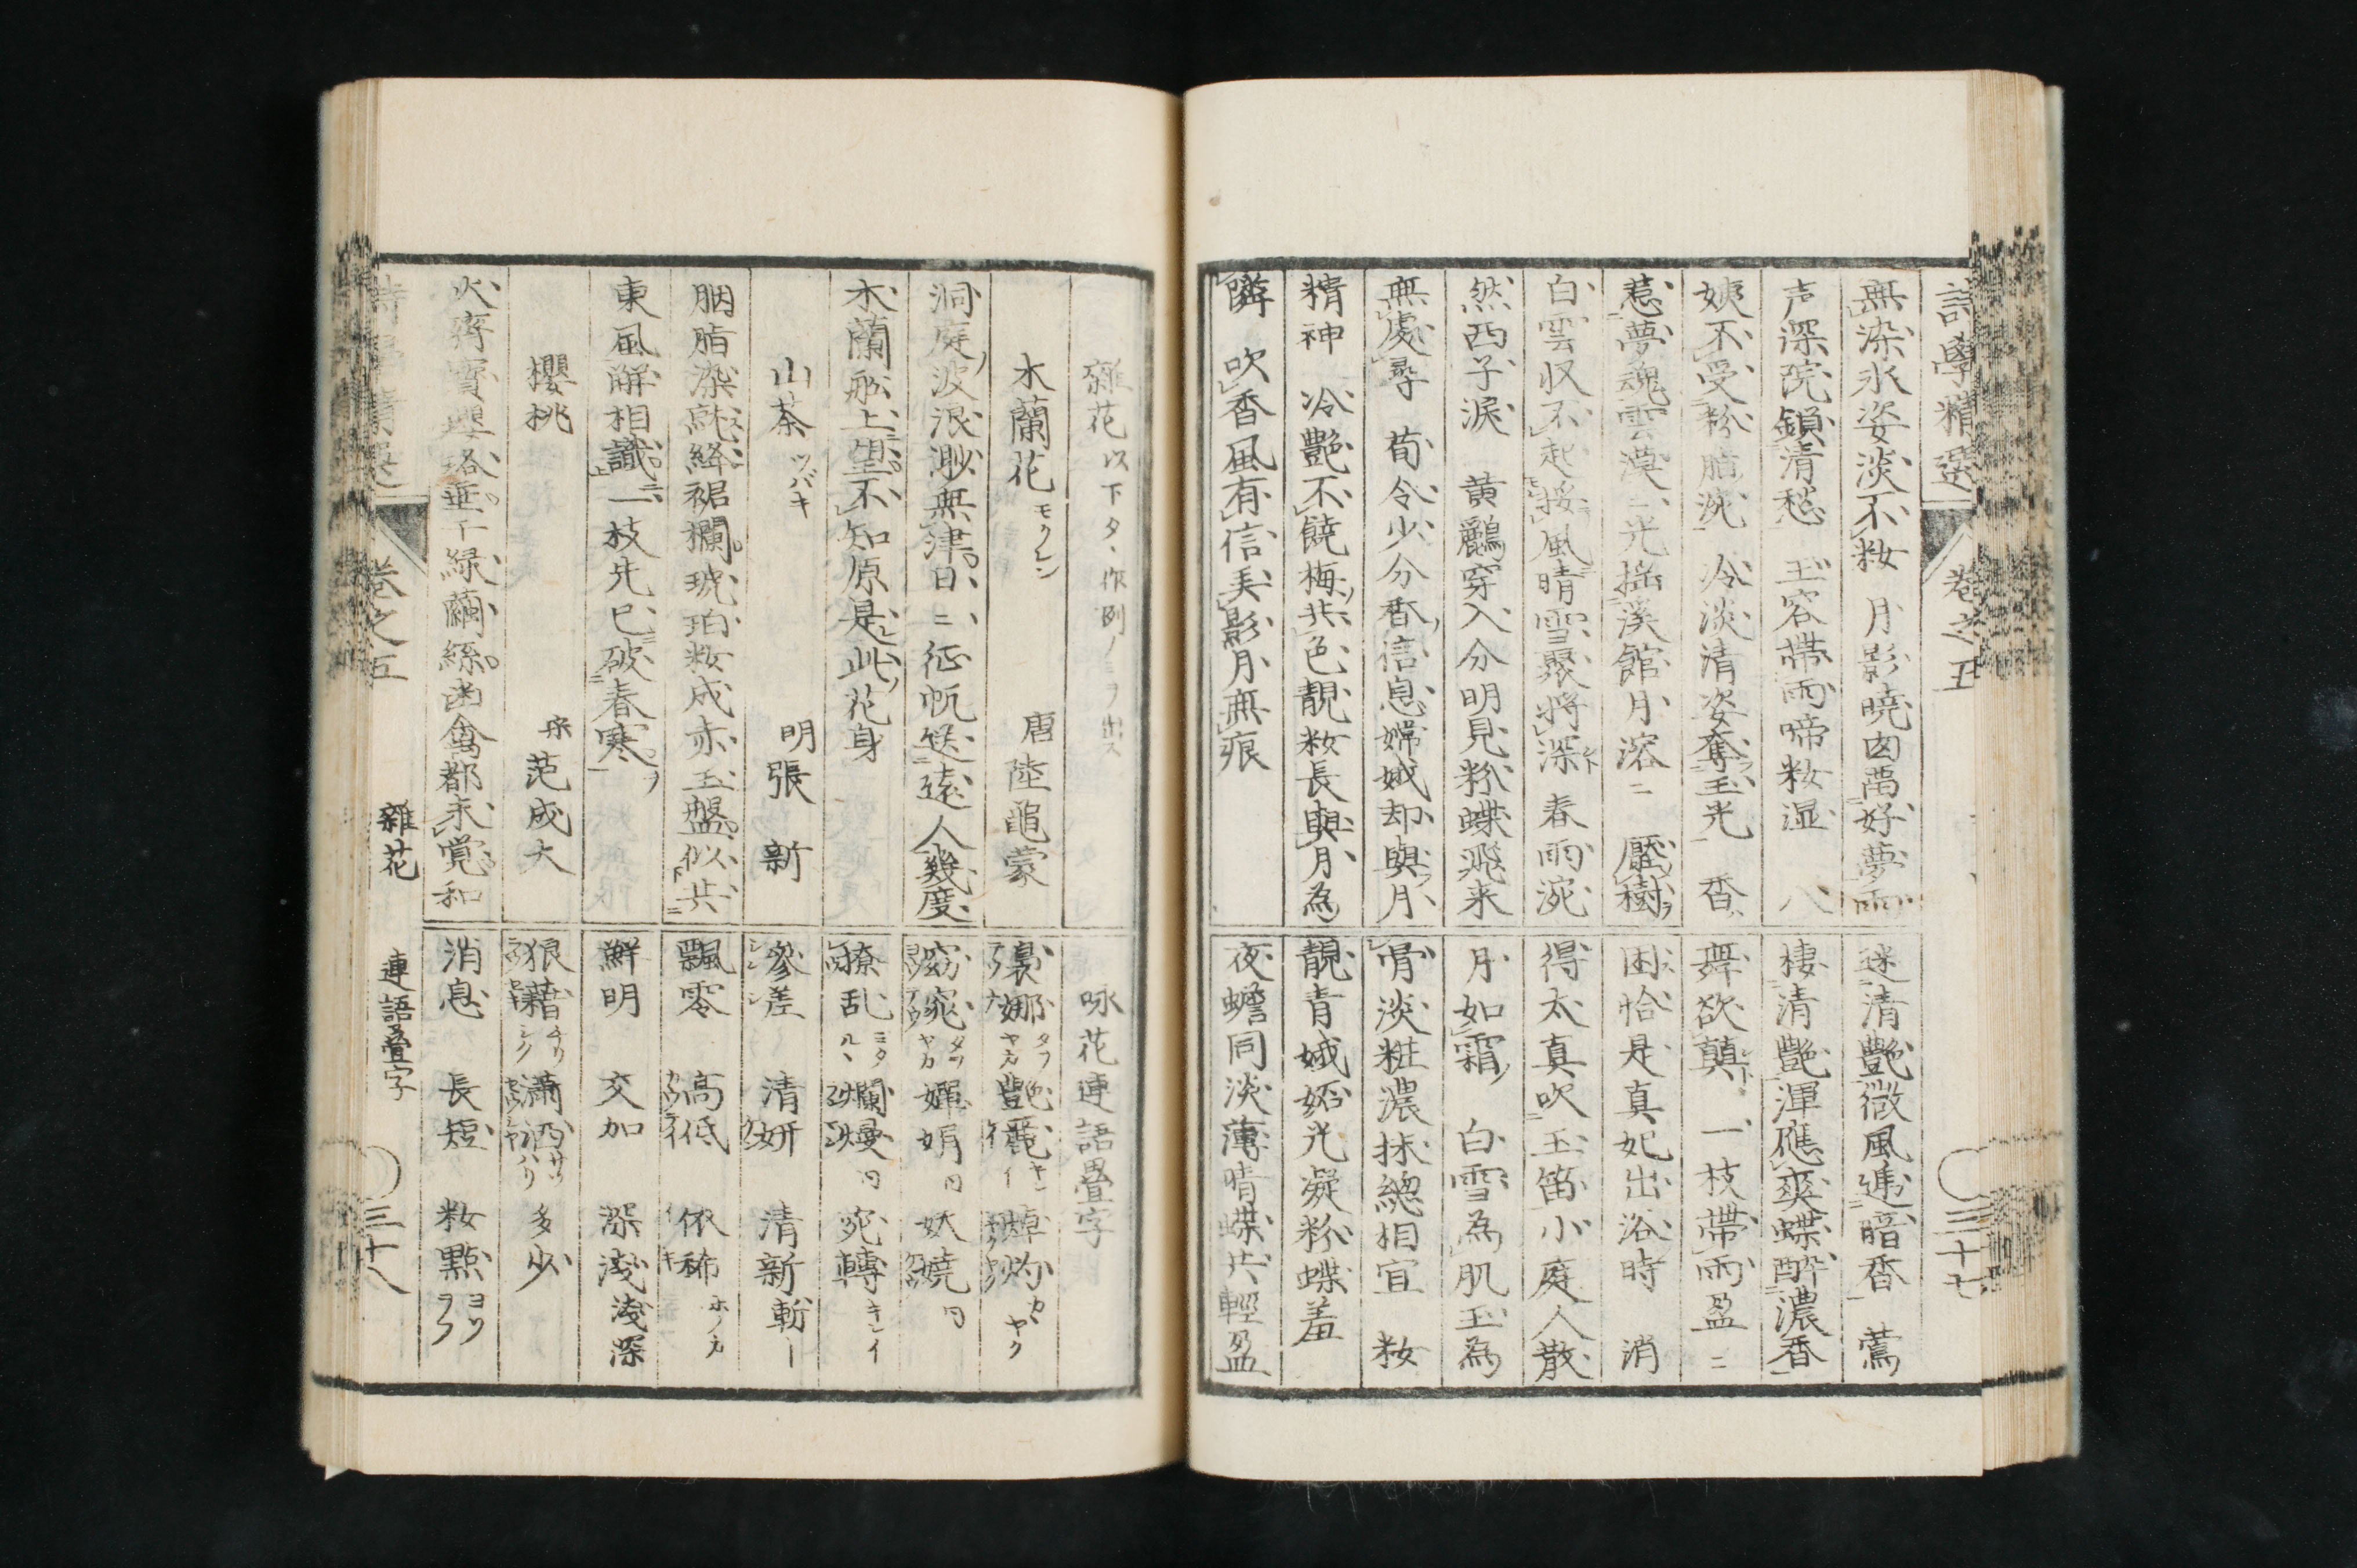 詩學精選 卷之五 ○三十七
無染氷姿淡不粧 月影曉囪萬好夢雨
声深院鎖清愁 玉容帶雨啼粧湿 八
姨不受粉脂洗 冷淡清姿奪玉光 香
惹夢魂雲漠ニ光揺溪館月溶ニ 壓樹
白雲収不起挼風晴雪聚將深 春雨涴
然西子涙 黄鸝穿入分明見粉蝶飛来
無處尋 荀令少分香信息嫦娥却與月
精神 冷艷不饒梅共色靚粧長與月為
隣 吹香風有信羙影月無痕
迷清艷微風逓暗香 鶯
棲清艷渾應爽蝶醉濃香
舞欲顛 一枝帶雨盈ニ
困恰是真妃出浴時 消
得太真吹玉笛小庭人散
月如霜 白雪為肌玉為
骨淡粧濃抹總相宜 粧
靚青娥妬光凝粉蝶羞
夜蟾同淡薄晴蝶共輕盈
雜花 以下タヽ作例ノミヲ出ス
木蘭花 モクレン 唐 陸龜蒙
洞庭波浪渺無津日ニ征帆送遠人幾度
木蘭船上望不知原是此花身
山茶 ツバキ 明 張 新
胭脂染就絳裙襴琥珀粧成赤玉盤似共
東風解相識一枝先已破春寒
櫻桃 宋 范成大
火齊寶瓔珞垂于緑繭絲幽禽都未覚和
咏花連語疊字
裊娜 タヲヤカ 艷麗 キレイ 焯灼 カヽヤク
窈窕 タヲヤカ 嬋娟 同 妖嬈 同
撩乱 ミタルヽ 爛熳 同 宛轉 キレイ
參差 清妍 清新 斬ー
飄零 高低 依稀 ホノカ
鮮明 交加 深淺 淺深
狼藉 瀟洒 サツハリ 多少
消息 長短 粧點 ヨソヲフ
詩學精選 卷之五 雜花 連語疊字 ○三十八